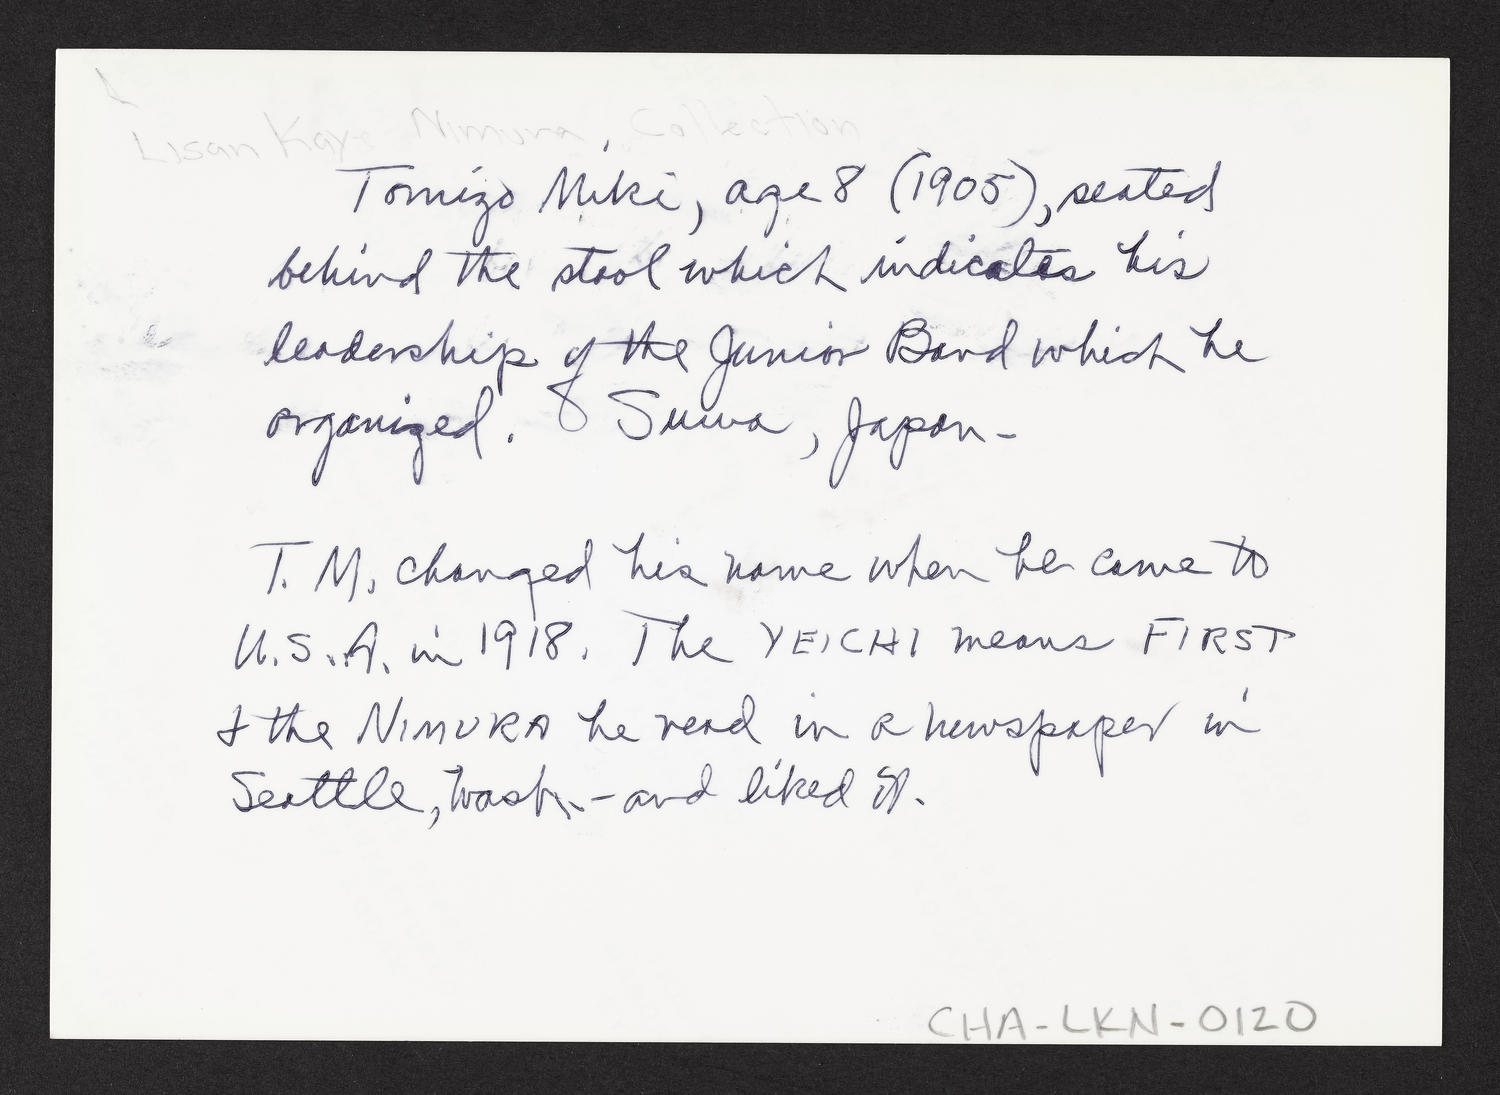 Lisan Kay Nimura, Collection
Tomizo Miki, age 8 (1905), seated
behind the stool which indicates his
leadership of the Junior Band which he
organized. Suwa, Japan-
T. M. changed his name when he came to
U.S.A. in 1918. The YEICHI means FIRST
& the NIMURA he read in a newspaper in
Seattle, Wash. - and liked it.
CHA-LKN-0120